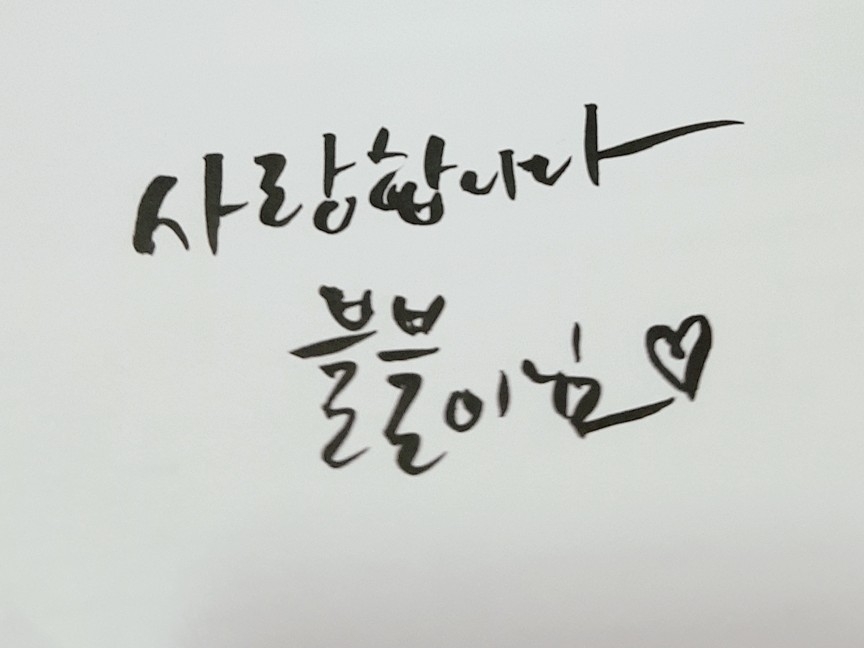 사랑합니다
블블이님♡